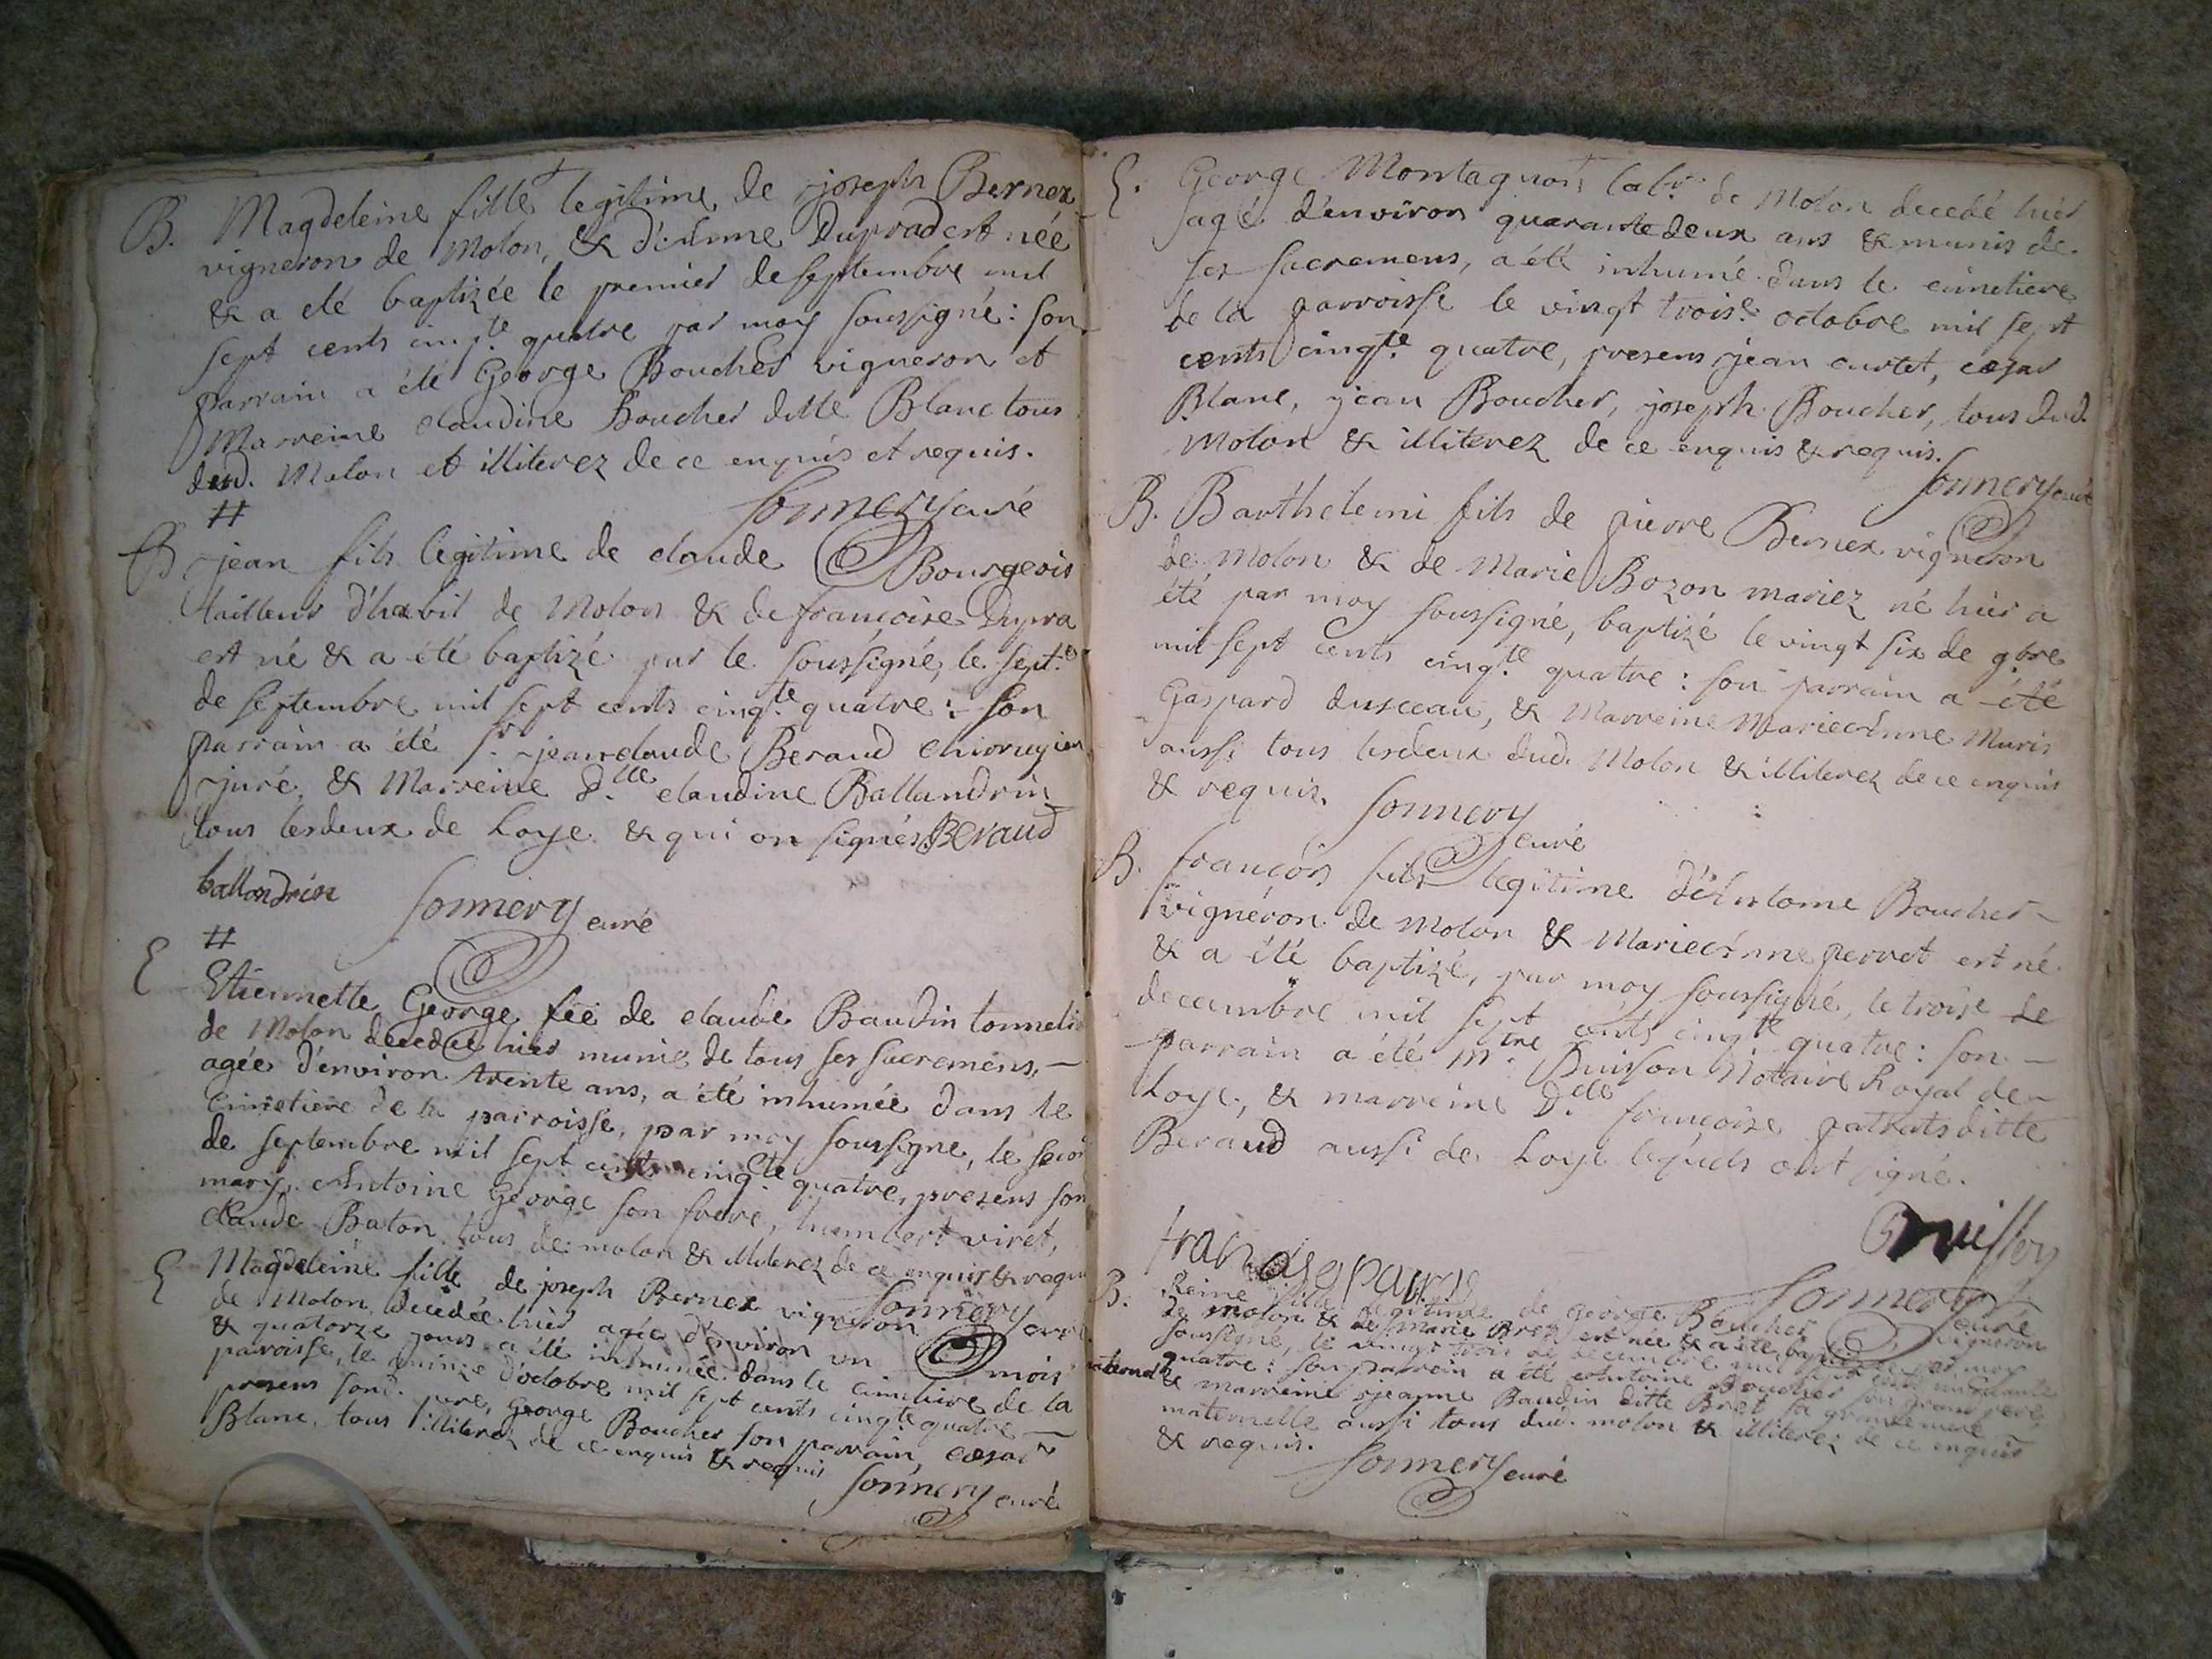 B. Magdeleine fille legitime de joseph Bernex
vigneron de Molon, & d'Anne Duprad est née
& a été baptizée le premier de septembre mil
sept cents cinq.te quatre par moy soussigné: son
parrain a été George Boucher vigneron et
Marreine claudine Boucher ditte Blanc tous
dud. Molon et illiterez de ce enquis et requis.
Sonnery curé
B jean fils legitime de claude Bourgeois
tailleur d'habit de Molon & de françoise Dupra
est né & a été baptizé par le soussigné, le sept.e
de septembre mil sept cents cinq.te quatre: son
parrain a été s.r jean claude Beraud chirurgien
juré, & Marreine d.lle claudine Ballandrin
tous lesdeux de Loye & qui on signés Beraud
ballandrin Sonnery curé
E Etiennette George fée de claude Baudin tonnelier
de Molon decedée hier munie de tous ses sacremens,
agée d'environ trente ans, a été inhumée dans le
Cimetiere de la parroisse, par moy soussigne, le
de septembre mil sept cents cinq.te quatre, presens son
mary, Antoine George son frere, humbert viret,
claude Baton tous de molon & illiterez de ce enquis & requis
Sonnery curé
E Magdeleine fille de joseph Bernex vigneron
de Molon, decedée hier agée d'environ un mois
& quatorze jours a été inhumée dans le Cimetiere de la
paroisse, le quinze d'octobre mil sept cents cinq.te quatre
presens sond. pere, George Boucher son parrain, cæsar
Blanc, tous illiterez de ce enquis & requis
Sonnery curé
E. George Montagnon lab.r de Molon decedé hier
agé d'environ quarante deux ans & munis de
ses sacremens, a été inhumé dans le cimetiere
de la parroisse le vingt trois.e octobre mil sept
cents cinq.te quatre, presens jean curtet, cæsar
Blanc, jean Boucher, joseph Boucher, tous dud.
Molon & illiterez de ce enquis & requis.
Sonnery curé
B. Barthelemi fils de pierre Bernex vigneron
de Molon & de Marie Bozon mariez né hier a
été par moy soussigné, baptizé le vingt six de 9.bre
mil sept cents cinq.te quatre: son parrain a été
Gaspard dusceau, & Marreine Marie Anne Muris
aussi tous lesdeux dud. Molon & illiterez de ce enquis
& requis. Sonnery curé
B. françois fils legitime d'Antoine Boucher
vigneron de Molon & Marie Anne perret est né
& a été baptizé, par moy soussigné, le trois.e de
decembre mil sept cents cinq.te quatre: son
parrain a été M.tre Buisson Notaire Royal de
Loye, & marreine D.elle françoise ditte
Beraud aussi de Loye lequels ont signé.
Buisson
Sonnery curé
B. Reine fille legitime de George Boucher vigneron
de molon & de marie Bret est née & a été baptizée par moy
soussigné, le vingt trois de decembre mil sept cents cinquante
quatre: son parrain a été Antoine Boucher son grand pere
paternel & marreine jeanne Baudin ditte Bret sa grandemere
maternelle aussi tous dud. molon & illiterez de ce enquis
& requis.
Sonnery curé